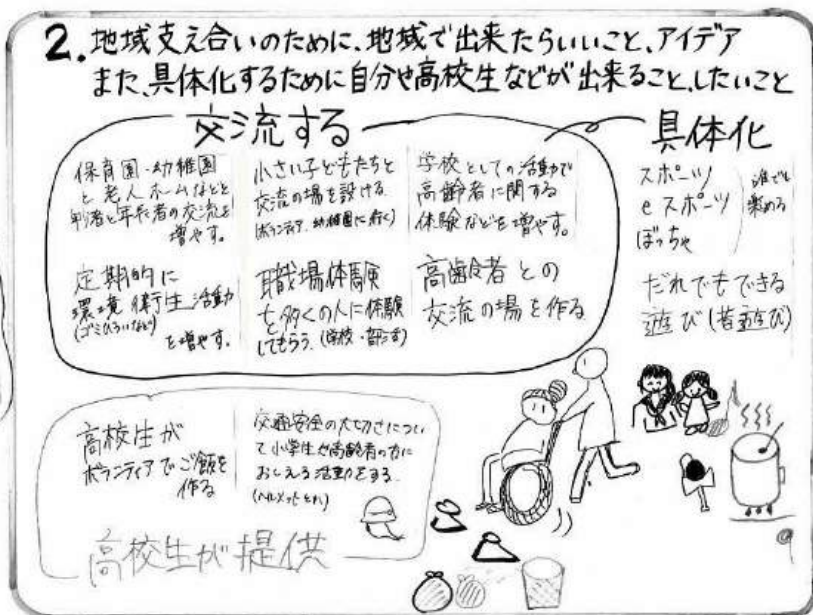 2. 地域支え合いのために、地域で出来たらいいこと、アイデア
また、具体化するために自分や高校生などが出来ること、したいこと
交流する
保育園・幼稚園
と老人ホームなどと
年少者と年長者の交流を
増やす。
小さい子どもたちと
交流の場を設ける
(ボランティア、幼稚園に行く)
学校としての活動で
高齢者に関する
体験などを増やす。
定期的に
環境衛生活動
(ゴミひろいなど)
を増やす。
職場体験
を多くの人に体験
してもらう。(学校・部活)
高齢者との
交流の場を作る
具体化
スポーツ
eスポーツ
ぼっちゃ
誰でも
楽める
だれでもできる
遊び(昔遊び)
高校生が
ボランティアでご飯を
作る
交通安全の大切さについ
て小学生や高齢者の方に
おしえる活動をする
高校生が提供